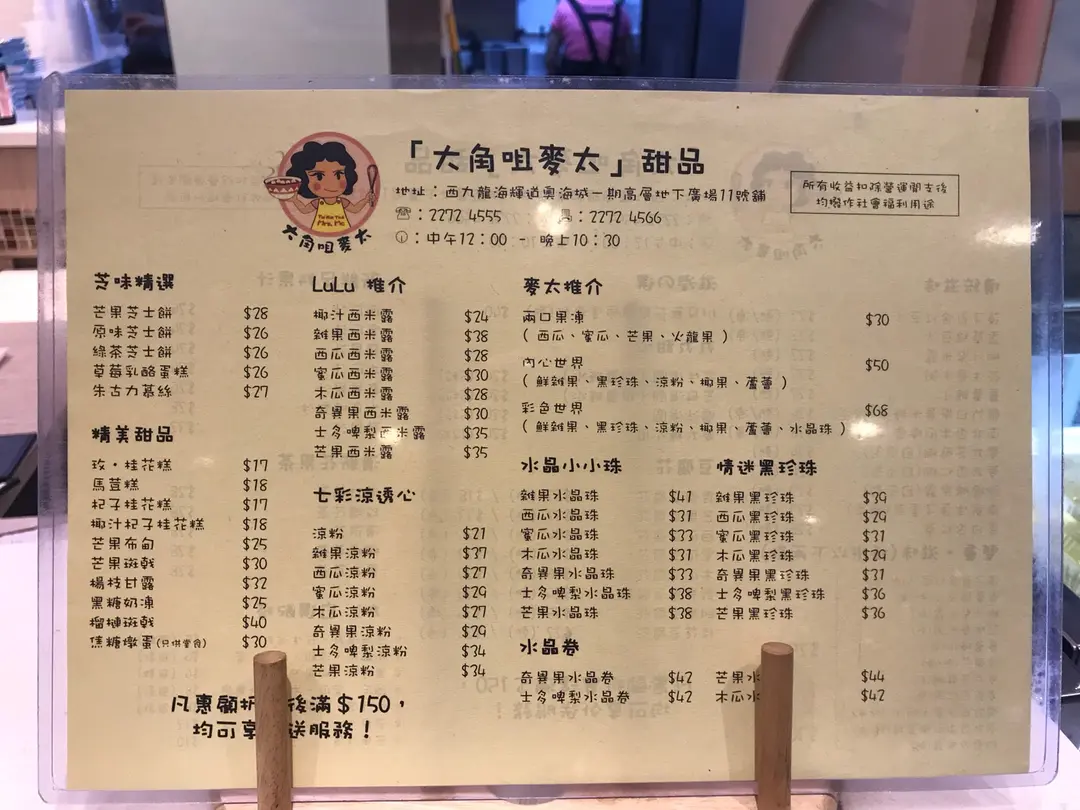 「大角咀麥太」甜品
地址：西九龍海輝道奧海城一期高層地下廣場11號舖
☎：2272 4555
：2272 4566
：中午12：00 - 晚上10：30
所有收益扣除營運開支後
均撥作社會福利用途
大角咀麥太
芝味精選
芒果芝士餅 $28
原味芝士餅 $26
綠茶芝士餅 $26
草莓乳酪蛋糕 $26
朱古力慕絲 $27
精美甜品
玫·桂花糕 $17
馬荳糕 $18
杞子桂花糕 $17
椰汁杞子桂花糕 $18
芒果布甸 $25
芒果班戟 $30
楊枝甘露 $32
黑糖奶凍 $25
榴槤班戟 $40
焦糖燉蛋(只供堂食) $30
LuLu 推介
椰汁西米露 $24
雜果西米露 $38
西瓜西米露 $28
蜜瓜西米露 $30
木瓜西米露 $28
奇異果西米露 $30
士多啤梨西米露 $35
芒果西米露 $35
七彩涼透心
涼粉 $21
雜果涼粉 $37
西瓜涼粉 $27
蜜瓜涼粉 $29
木瓜涼粉 $27
奇異果涼粉 $29
士多啤梨涼粉 $34
芒果涼粉 $34
麥太推介
兩口果凍 $30
( 西瓜、蜜瓜、芒果、火龍果 )
內心世界 $50
( 鮮雜果、黑珍珠、涼粉、椰果、蘆薈 )
彩色世界 $68
( 鮮雜果、黑珍珠、涼粉、椰果、蘆薈、水晶珠 )
水晶小小珠
雜果水晶珠 $41
西瓜水晶珠 $31
蜜瓜水晶珠 $33
木瓜水晶珠 $31
奇異果水晶珠 $33
士多啤梨水晶珠 $38
芒果水晶珠 $38
情迷黑珍珠
雜果黑珍珠 $39
西瓜黑珍珠 $29
蜜瓜黑珍珠 $31
木瓜黑珍珠 $29
奇異果黑珍珠 $31
士多啤梨黑珍珠 $36
芒果黑珍珠 $36
水晶卷
奇異果水晶卷 $42
士多啤梨水晶卷 $42
芒果水 $44
木瓜水 $42
凡惠顧折 後滿$150，
均可享 送服務！